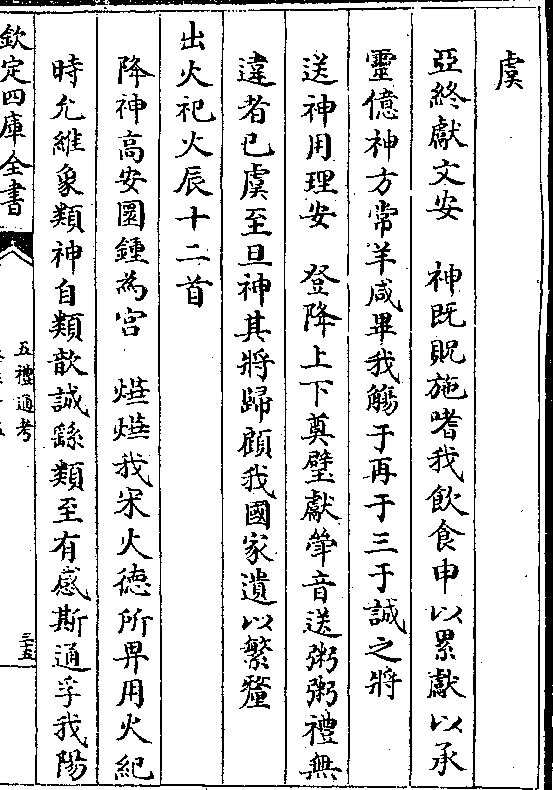 虞
亞終獻文安　神既貺施嗜我飲食申以累獻以承
靈億神方常羊咸畢我觴于再于三于誠之將
送神用理安　登降上下奠璧獻斝音送粥粥禮無
違者已虞至旦神其將歸顧我國家遺以繁釐
出火祀火辰十二首
降神高安圜鍾為宮　燡燡我宋火德所畀用火紀
時允維象類神自類歆誠繇類至有感斯通孚我陽
欽定四庫全書
五禮通考
三五